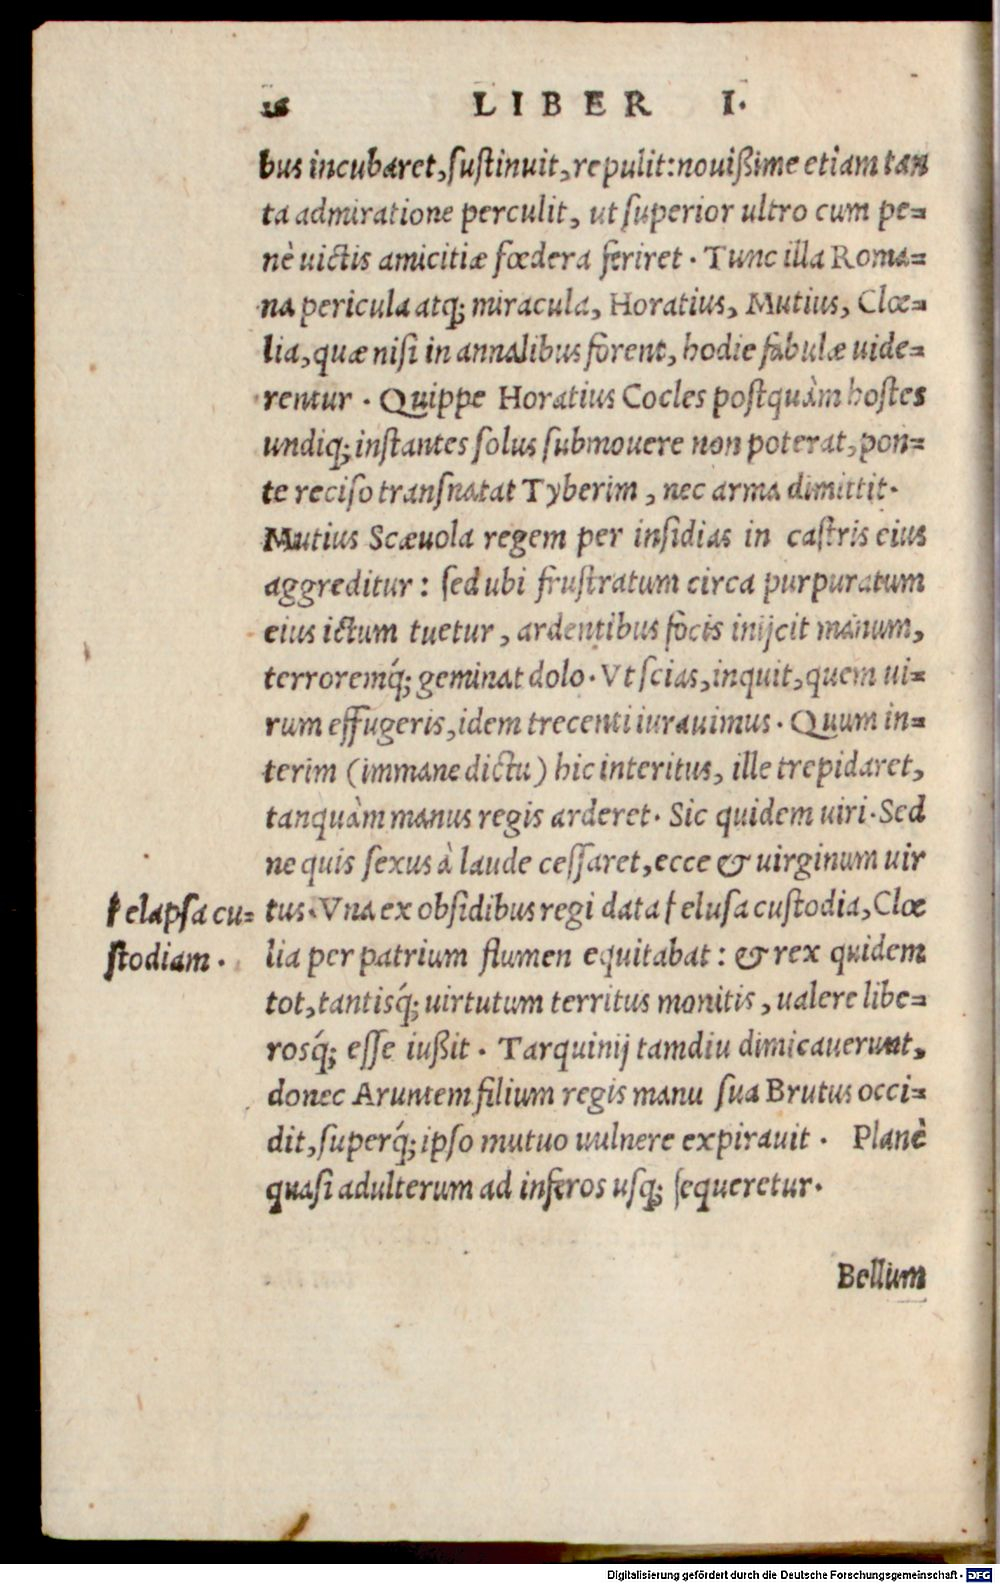 16 LIBER I.
bus incubaret, ſuſtinuit, repulit: nouißime etiam tan
ta admiratione perculit, ut ſuperior ultro cum pe=
nè uictis amicitiæ fœdera feriret. Tunc illa Roma=
na pericula atq; miracula, Horatius, Mutius, Clœ=
lia, quæ niſi in annalibus forent, hodie fabulæ uide=
rentur. Quippe Horatius Cocles poſtquàm hoſtes
undiq; inſtantes ſolus ſubmouere non poterat, pon=
te reciſo tranſnatat Tyberim, nec arma dimittit.
Mutius Scæuola regem per inſidias in caſtris eius
aggreditur: ſed ubi fruſtratum circa purpuratum
eius ictum tuetur, ardentibus focis inijcit manum,
terroremq́; geminat dolo. Vt ſcias, inquit, quem ui=
rum effugeris, idem trecenti iurauimus. Quum in=
terim (immane dictu) hic interitus, ille trepidaret,
tanquàm manus regis arderet. Sic quidem uiri. Sed
ne quis ſexus à laude ceſſaret, ecce & uirginum uir
tus. Vna ex obſidibus regi data † eluſa cuſtodia, Clœ
lia per patrium flumen equitabat: & rex quidem
tot, tantisq́; uirtutum territus monitis, ualere libe=
rosq́; eſſe iußit. Tarquinij tamdiu dimicauerunt,
donec Aruntem filium regis manu ſua Brutus occi=
dit, ſuperq́; ipſo mutuo uulnere expirauit. Planè
quaſi adulterum ad inferos uſq; ſequeretur.
† elapſa cu=
ſtodiam.
Bellum
Digitalisierung gefördert durch die Deutsche Forschungsgemeinschaft - DFG